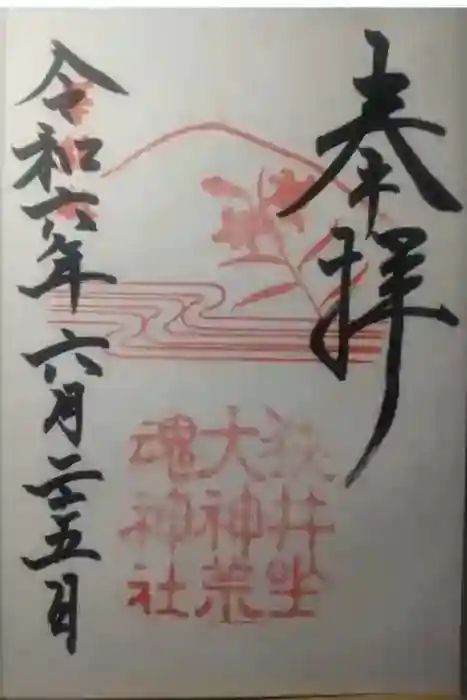 奉拝
狭井坐
大神荒
魂神社
令和六年 六月二十五日